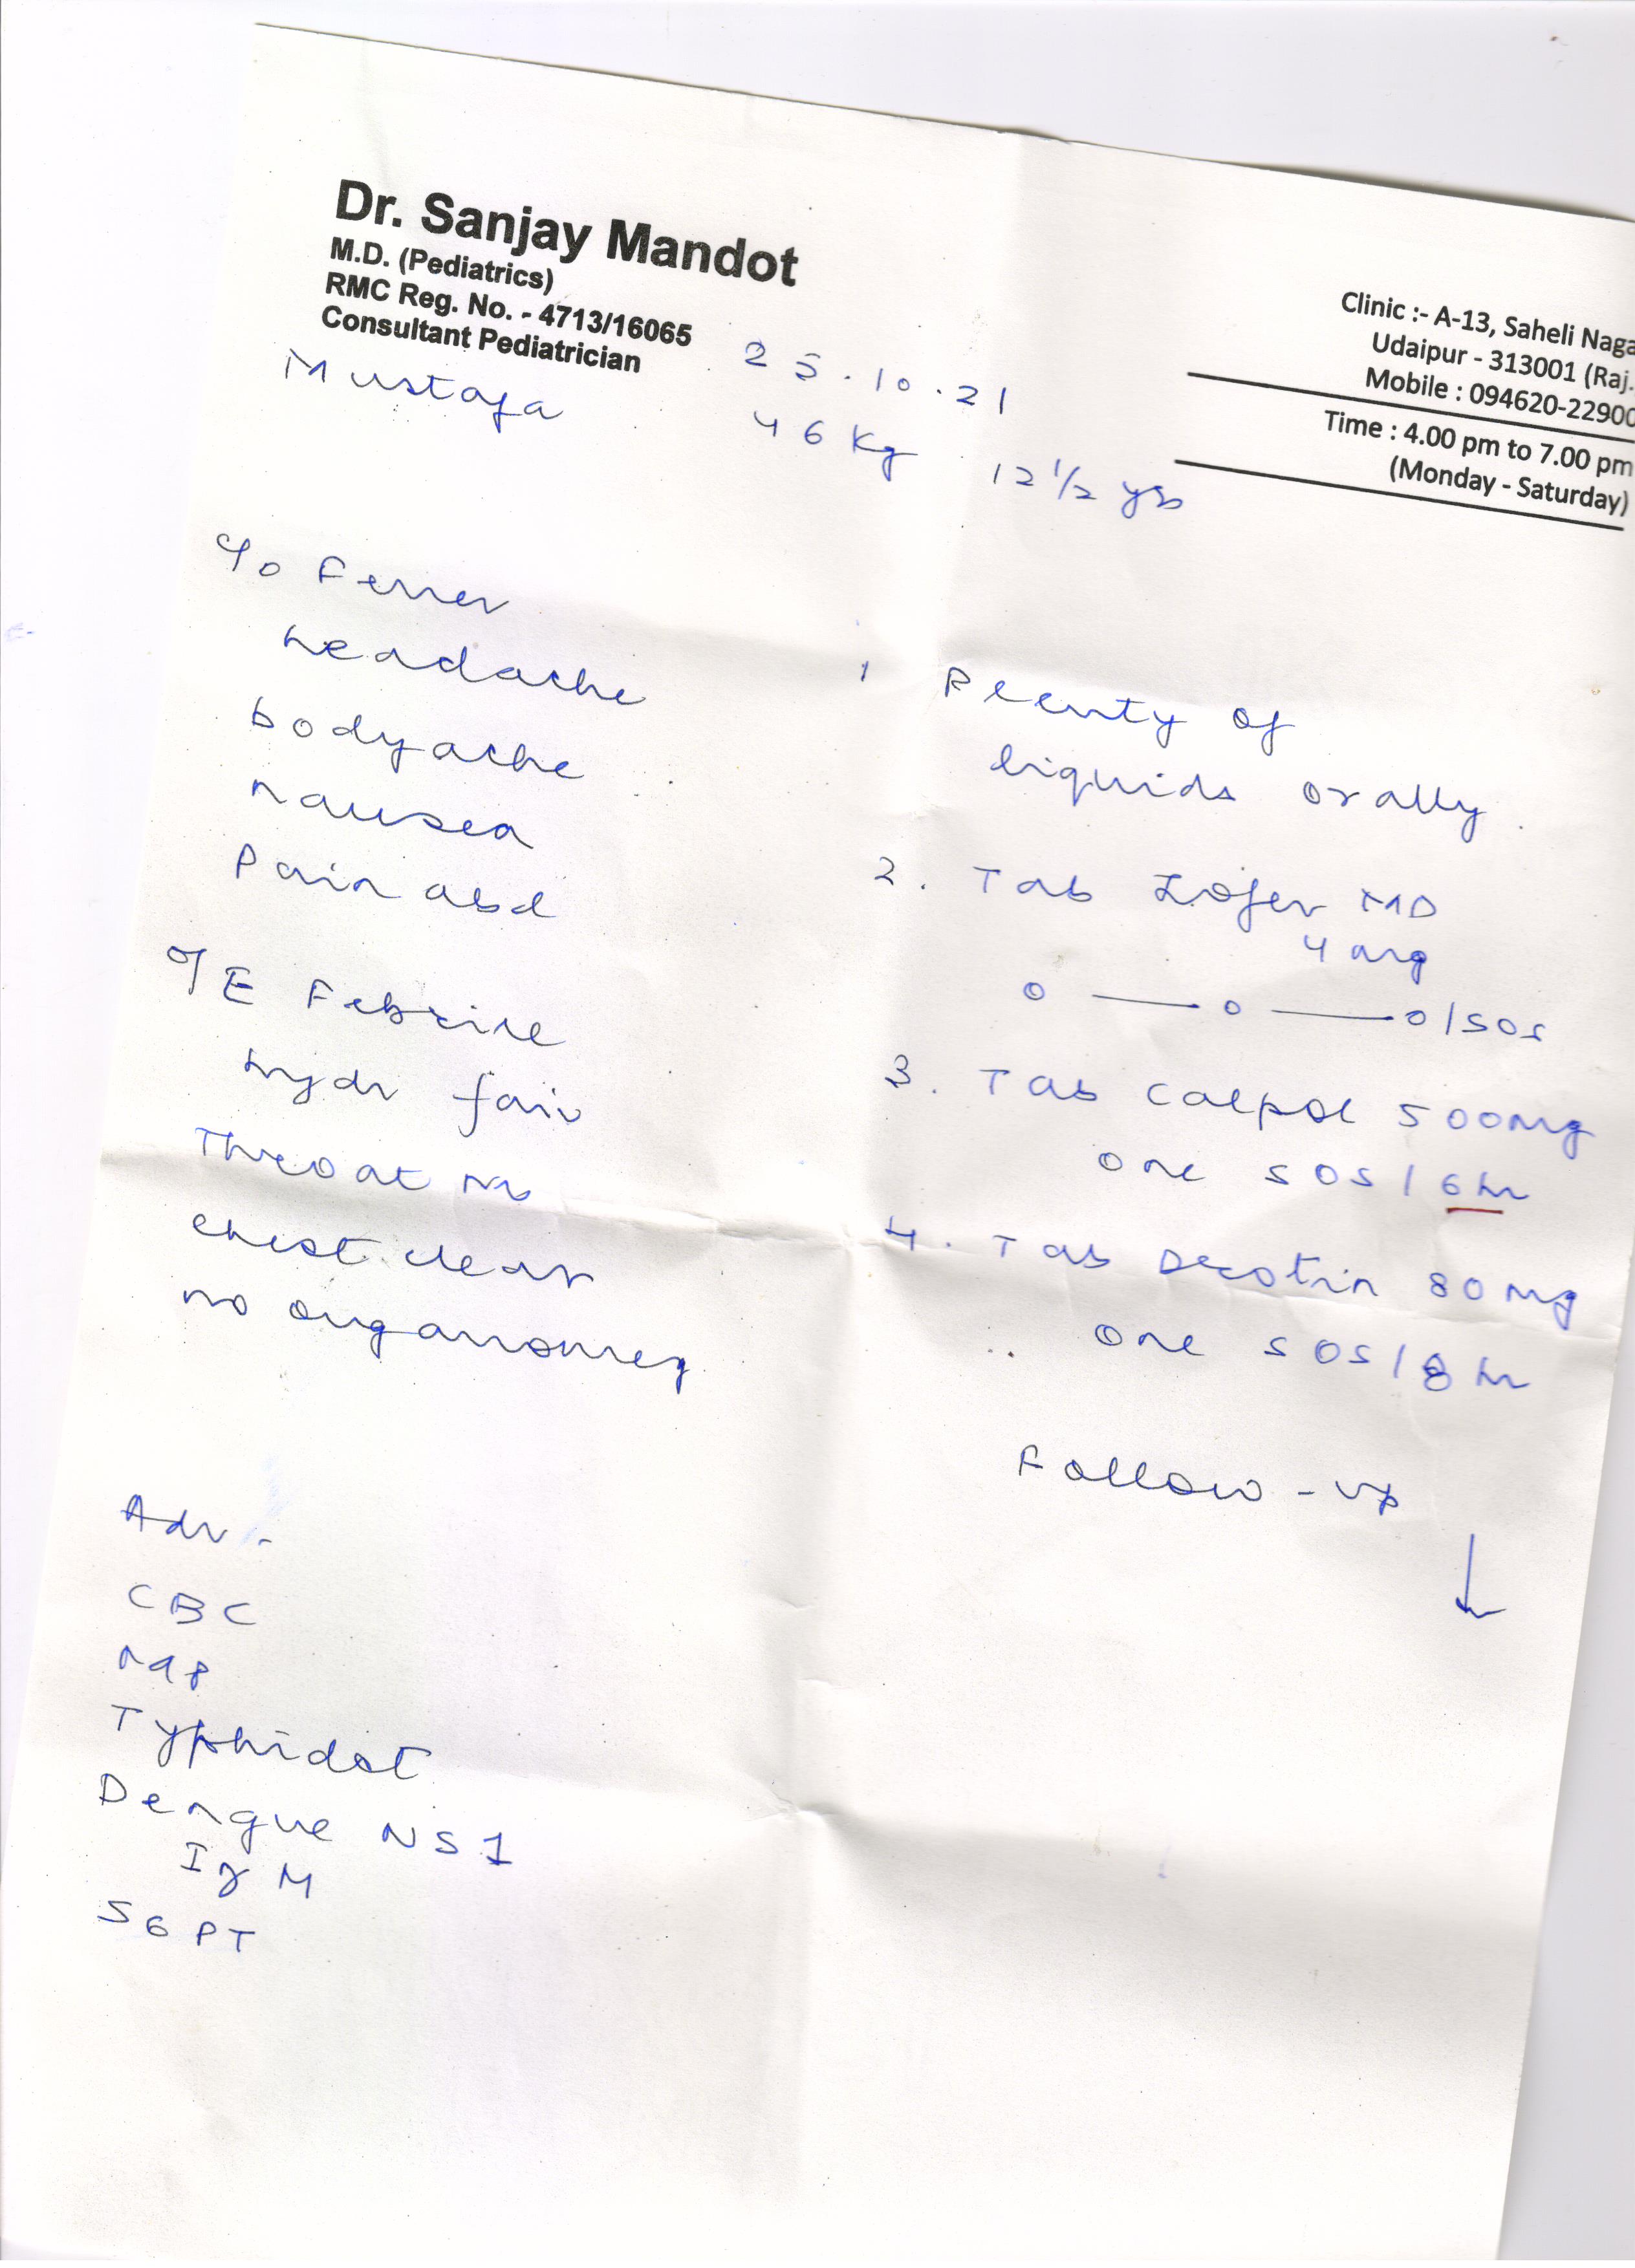 Dr. Sanjay Mandot
M.D. (Pediatrics)
RMC Reg. No. - 4713/16065
Consultant Pediatrician
Clinic :- A-13, Saheli Naga
Udaipur - 313001 (Raj.
Mobile : 094620-22900
Time : 4.00 pm to 7.00 pm
(Monday - Saturday)
Mustafa
25.10.21
46 Kg 12 1/2 yrs
C/o Fever
headache
bodyache
nausea
Pain abd
O/E Febrile
hydr fair
Throat
chest clear
no organomeg
Adv -
CBC
MP
Typhidot
Dengue NS1
IgM
SGPT
1 Plenty of
liquids orally.
2. Tab Zofer MD
4 mg
0 — 0 — 0/SOS
3. Tab Calpol 500mg
one SOS/6hr
4. Tab 80mg
one SOS/8hr
Follow-up
↓